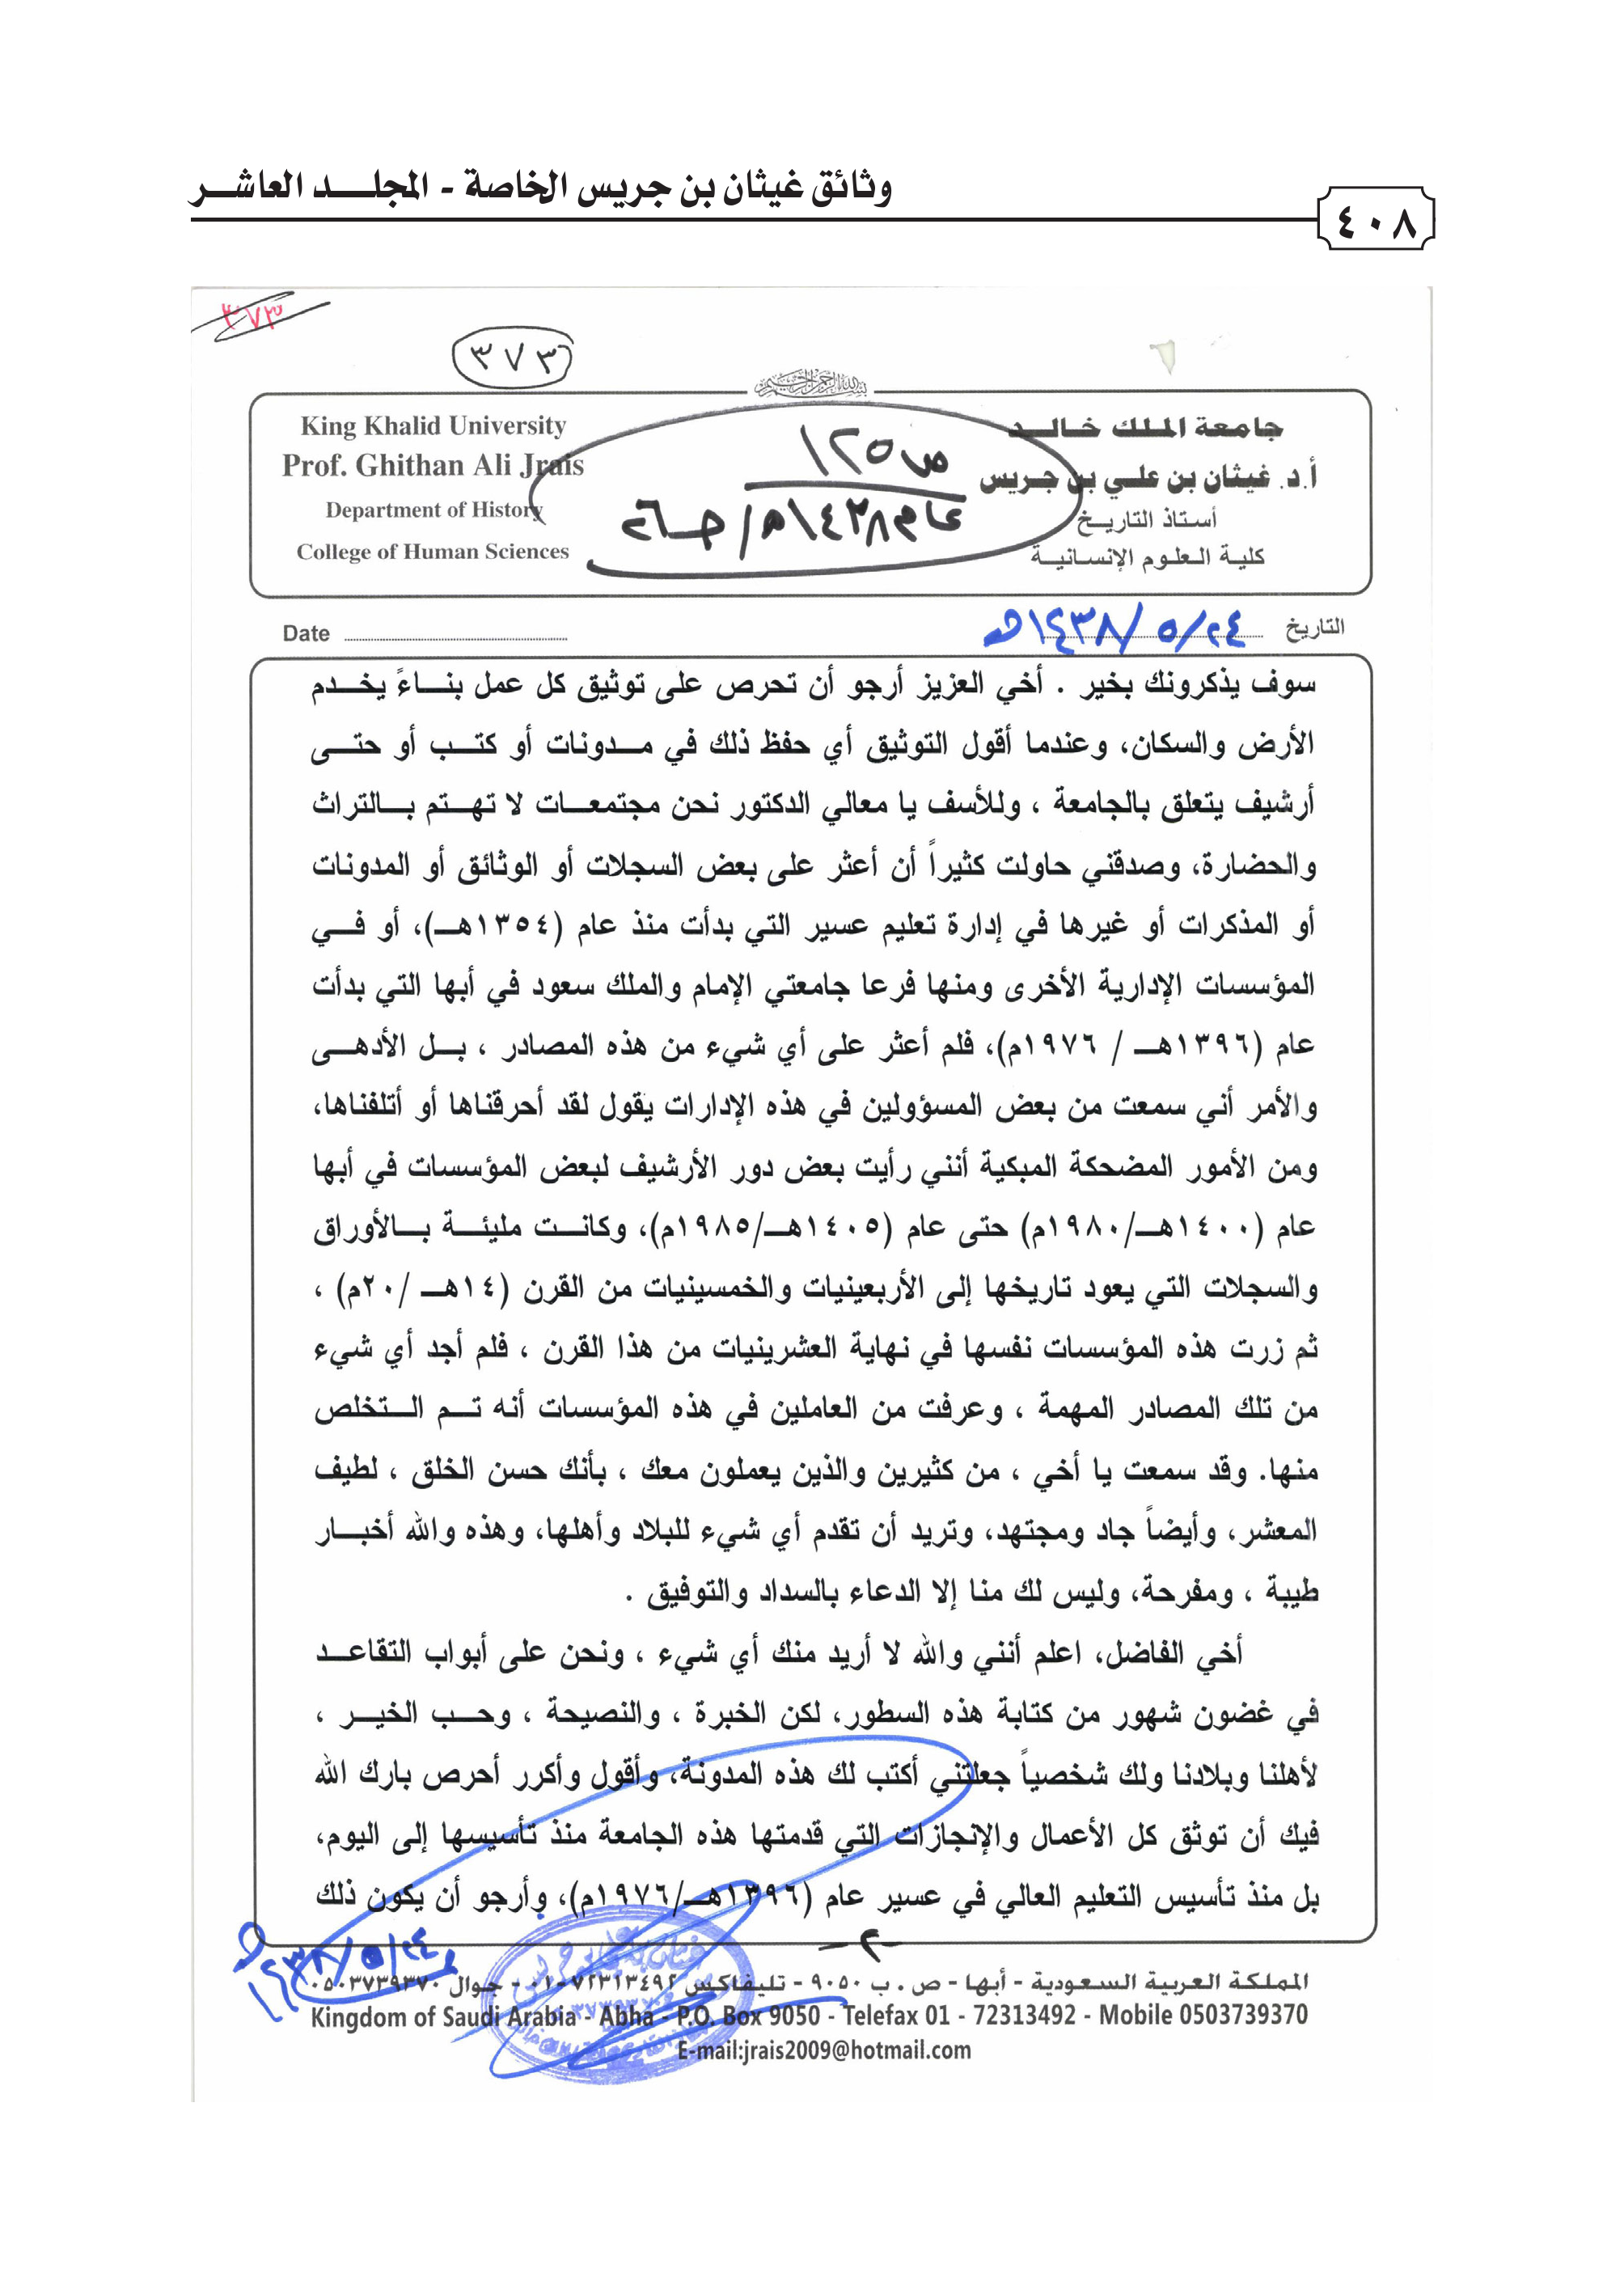 وثائق غيثان بن جريس الخاصة - المجلـــد العاشـــر
٤٠٨
٣٧٣
٣٧٣
بسم الله الرحمن الرحيم
جامعة الملك خالد
أ.د. غيثان بن علي بن جريس
أستاذ التاريخ
كلية العلوم الإنسانية
King Khalid University
Prof. Ghithan Ali Jrais
Department of History
College of Human Sciences
ص١٢٥
عام ١٤٣٨هـ/جـ٢٦
التاريخ ٢٤/٥/١٤٣٨هـ
Date
سوف يذكرونك بخير . أخي العزيز أرجو أن تحرص على توثيق كل عمل بنـــاءً يخـــدم
الأرض والسكان، وعندما أقول التوثيق أي حفظ ذلك في مـــدونات أو كتـــب أو حتـــى
أرشيف يتعلق بالجامعة ، وللأسف يا معالي الدكتور نحن مجتمعـــات لا تهـــتم بـــالتراث
والحضارة، وصدقني حاولت كثيراً أن أعثر على بعض السجلات أو الوثائق أو المدونات
أو المذكرات أو غيرها في إدارة تعليم عسير التي بدأت منذ عام (١٣٥٤هـ)، أو فـــي
المؤسسات الإدارية الأخرى ومنها فرعا جامعتي الإمام والملك سعود في أبها التي بدأت
عام (١٣٩٦هـ / ١٩٧٦م)، فلم أعثر على أي شيء من هذه المصادر ، بـــل الأدهـــى
والأمر أني سمعت من بعض المسؤولين في هذه الإدارات يقول لقد أحرقناها أو أتلفناها،
ومن الأمور المضحكة المبكية أنني رأيت بعض دور الأرشيف لبعض المؤسسات في أبها
عام (١٤٠٠هـ/١٩٨٠م) حتى عام (١٤٠٥هـ/١٩٨٥م)، وكانـــت مليئـــة بـــالأوراق
والسجلات التي يعود تاريخها إلى الأربعينيات والخمسينيات من القرن (١٤هـ /٢٠م) ،
ثم زرت هذه المؤسسات نفسها في نهاية العشرينيات من هذا القرن ، فلم أجد أي شيء
من تلك المصادر المهمة ، وعرفت من العاملين في هذه المؤسسات أنه تـــم الـــتخلص
منها. وقد سمعت يا أخي ، من كثيرين والذين يعملون معك ، بأنك حسن الخلق ، لطيف
المعشر، وأيضاً جاد ومجتهد، وتريد أن تقدم أي شيء للبلاد وأهلها، وهذه والله أخبـــار
طيبة ، ومفرحة، وليس لك منا إلا الدعاء بالسداد والتوفيق .
أخي الفاضل، اعلم أنني والله لا أريد منك أي شيء ، ونحن على أبواب التقاعـــد
في غضون شهور من كتابة هذه السطور، لكن الخبرة ، والنصيحة ، وحـــب الخيـــر ،
لأهلنا وبلادنا ولك شخصياً جعلتني أكتب لك هذه المدونة، وأقول وأكرر أحرص بارك الله
فيك أن توثق كل الأعمال والإنجازات التي قدمتها هذه الجامعة منذ تأسيسها إلى اليوم،
بل منذ تأسيس التعليم العالي في عسير عام (١٣٩٦هـ/١٩٧٦م)، وأرجو أن يكون ذلك
-٢-
٢٤/٥/١٤٣٨هـ
المملكة العربية السعودية - أبها - ص . ب ٩٠٥٠ - تليفاكس ٧٢٣١٣٤٩٢-٠١ - جوال ٠٥٠٣٧٣٩٣٧٠
Kingdom of Saudi Arabia - Abha - P.O. Box 9050 - Telefax 01 - 72313492 - Mobile 0503739370
E-mail:jrais2009@hotmail.com